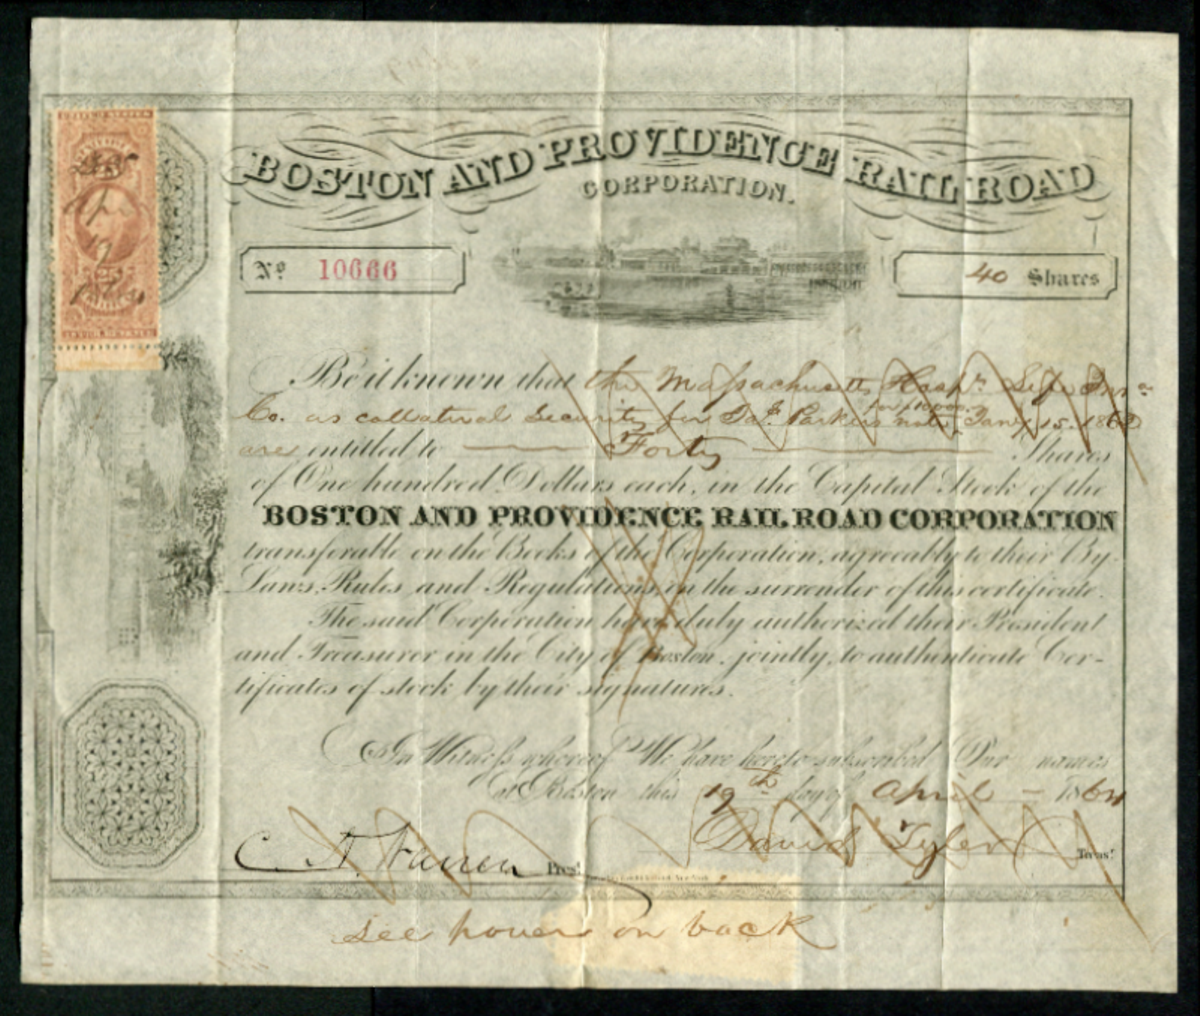 BOSTON AND PROVIDENCE RAIL ROAD
CORPORATION.
No 10666
40 Shares
Be it known that the Massachusetts Hospl. Life Insce
Co. as collateral Security for Jas. Parker's note for $10000. Jany 15. 1863
are entitled to Forty Shares
of One hundred Dollars each, in the Capital Stock of the
BOSTON AND PROVIDENCE RAIL ROAD CORPORATION
transferable on the Books of the Corporation, agreeably to their By-
Laws, Rules and Regulations, on the surrender of this certificate.
The said Corporation have duly authorized their President
and Treasurer in the City of Boston, jointly, to authenticate Cer-
tificates of stock by their signatures.
In Witness whereof We have hereto subscribed Our names
At Boston this 19th day of April 1864
David Tyler Treasr.
Prest.
see power on back